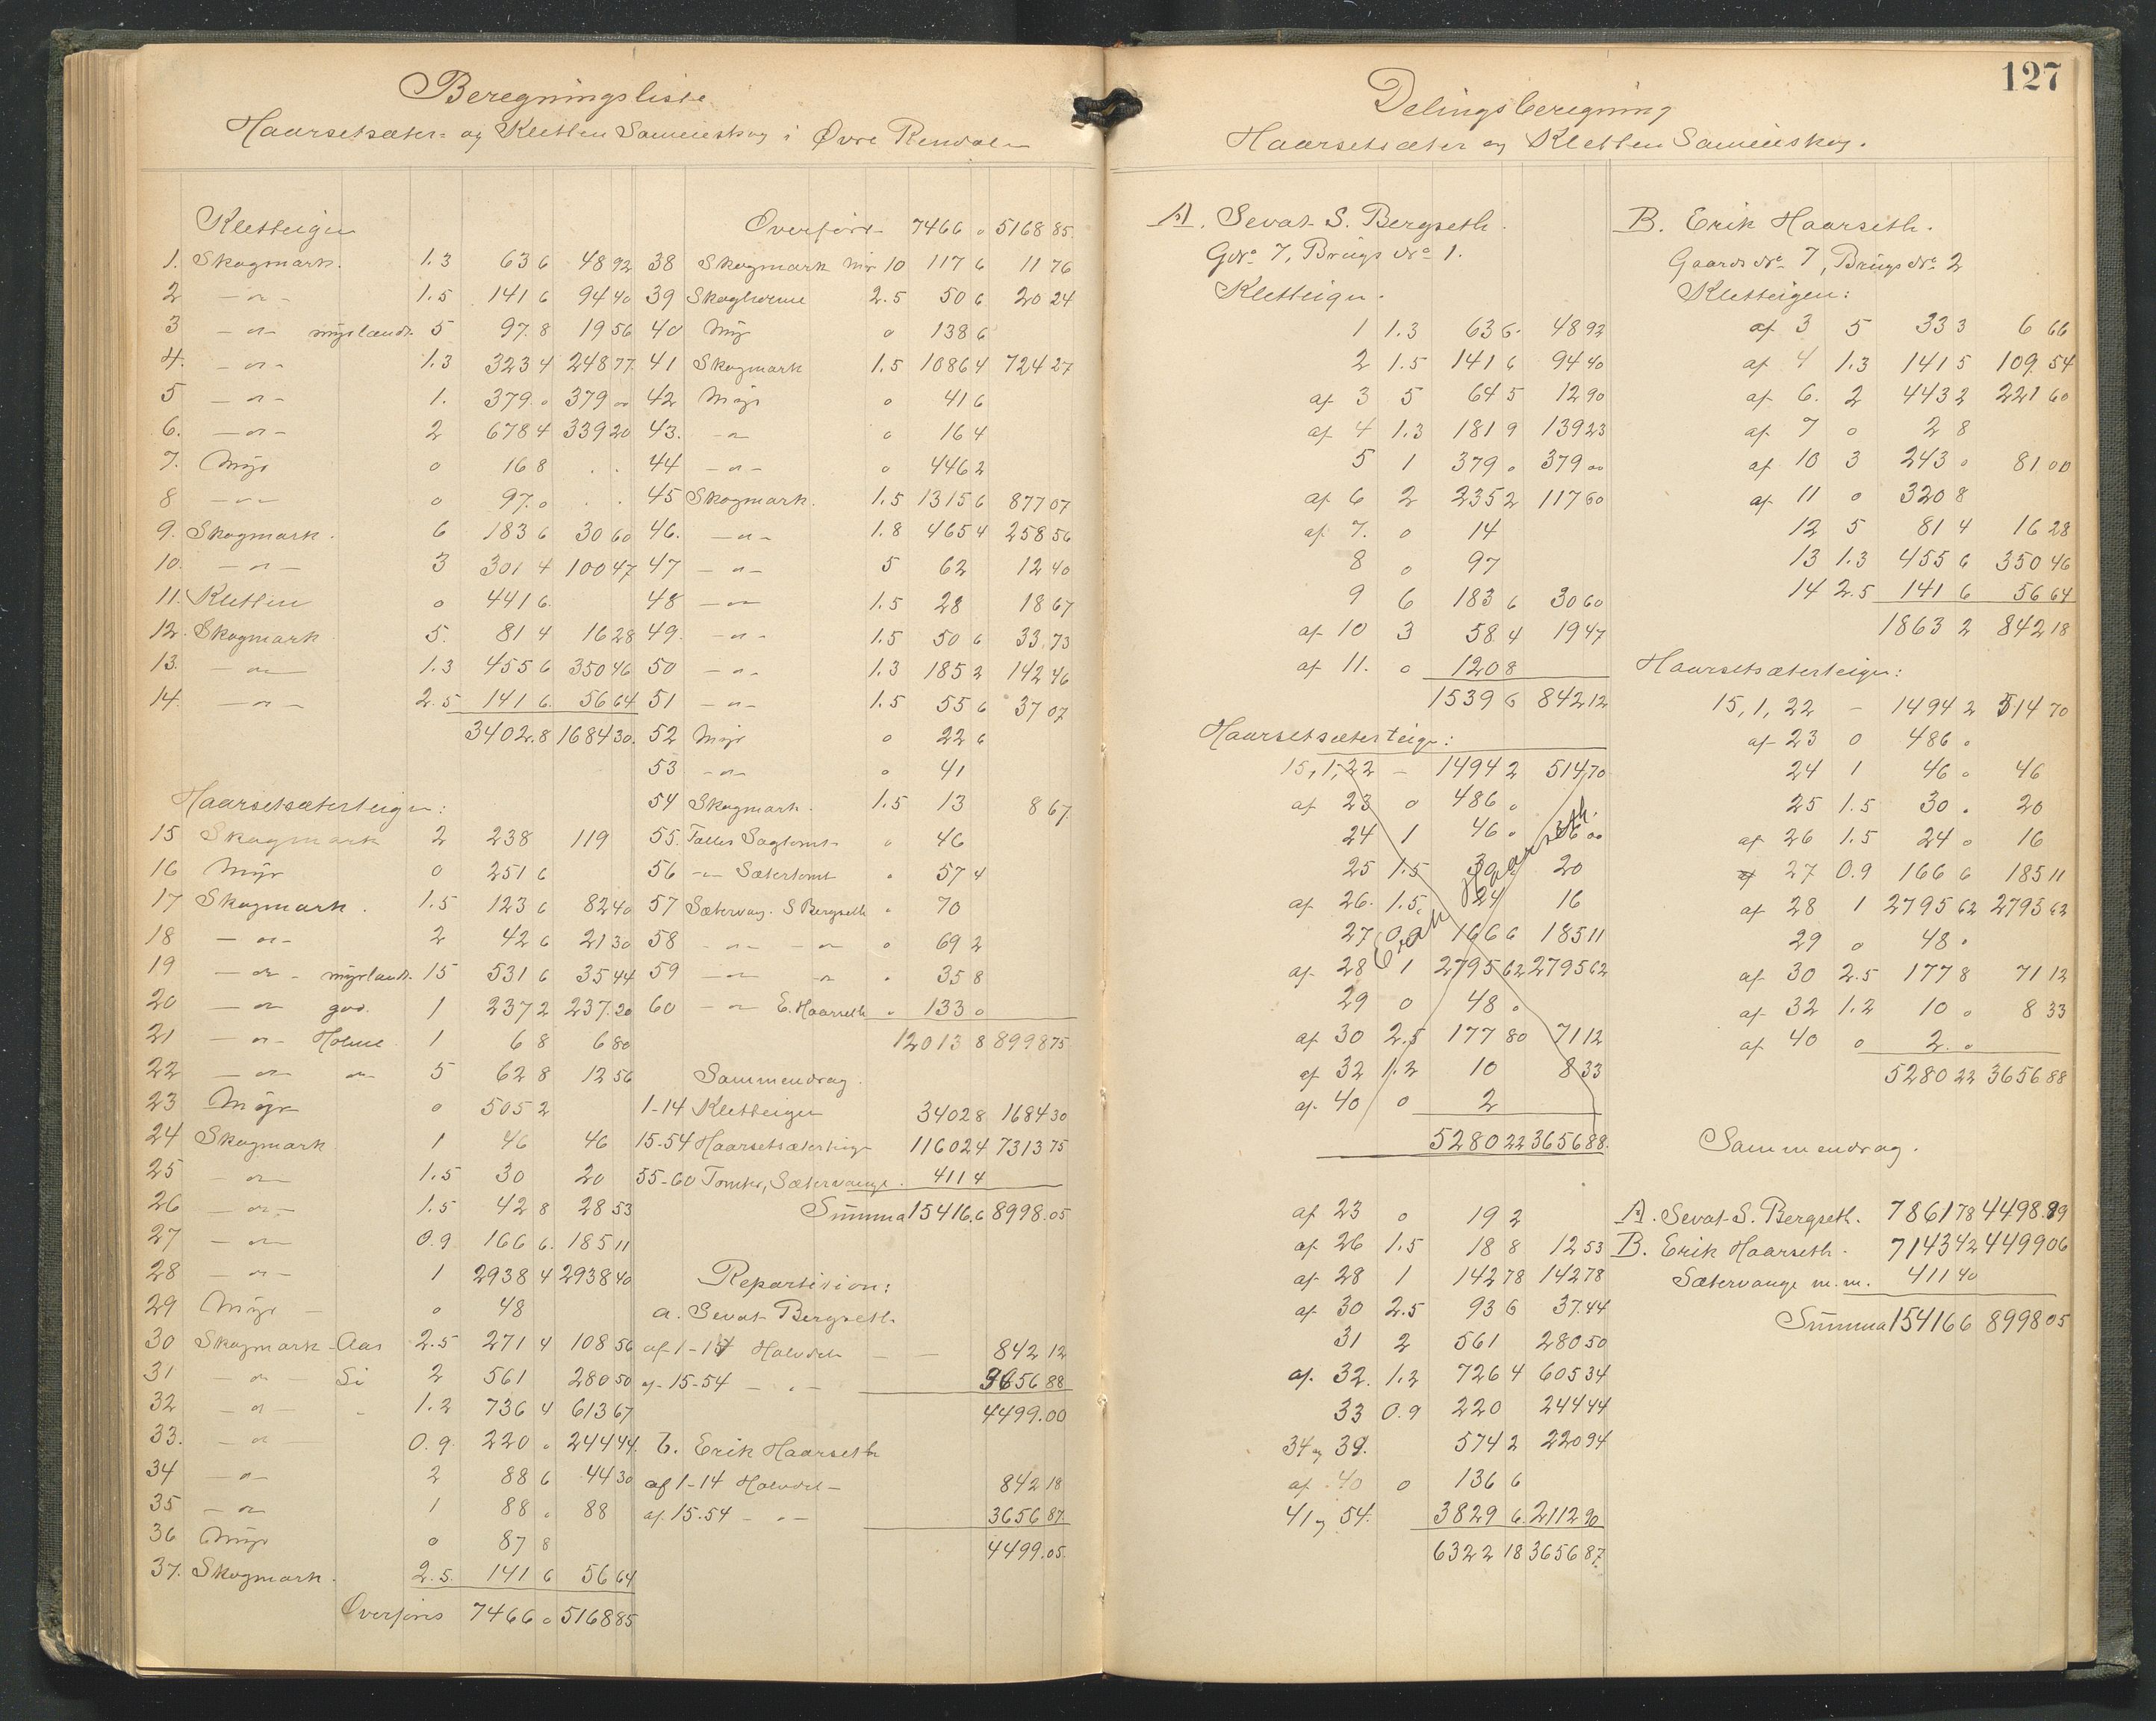 Beregningsliste
Haarsetsæter- og Kletten Sameieskog i Øvre Rendalen
Kletteigen
1. Skogmark. 1.3 63 6 48 92
2 — " — 1.5 141 6 94 40
3 — " — myrlændt. 5 97. 8 19 56
4. — " — 1.3 323 4 248 77.
5 — " — 1. 379. 0 379 00
6. — " — 2 678 4 339 20
7. Myr 0 16 8 . .
8 — " — 0 97. 0 . .
9. Skogmark. 6 183 6 30 60
10. — " — 3 301 4 100 47
11. Kletten 0 441 6.
12. Skogmark 5. 81 4 16 28
13. — " — 1.3 455 6 350 46
14. — " — 2.5 141 6. 56 64
3402. 8 1684 30.
Haarsetsæterteigen:
15 Skogmark 2 238 119
16 Myr 0 251 6
17 Skogmark. 1.5 123 6 82 40
18 — " — 2 42 6 21 30
19 — " — myrlændt. 15 531 6 35 44
20 — " — god. 1 237 2 237. 20
21 — " — Holme 1 6 8 6 80
22 — " — " 5 62 8 12 56
23 Myr 0 505 2
24 Skogmark 1 46 46
25 — " — 1.5 30 20
26 — " — 1.5 42 8 28 53
27 — " — 0.9 166 6. 185 11
28 — " — 1 2938 4 2938 40
29 Myr — 0 48
30 Skogmark Aas 2.5 271 4 108 56
31 — " — Li 2 561 280 50
32 — " — 1.2 736 4 613 67
33. — " — 0.9. 220 0 244 44.
34 — " — 2 88 6 44 30
35 — " — 1 88 0 88
36 Myr 0 87 8
37. Skogmark. 2.5. 141 6 56 64
Overføres 7466 0 5168 85
Overført 7466 0 5168 85.
38 Skogmark Myr 10 117 6 11 76
39 Skogholme 2.5 50 6 20 24
40 Myr 0 138 6
41 Skogmark 1.5 1086 4 724 27
42 Myr 0 41 6
43. — " — 0 16 4
44 — " — 0 446 2
45 Skogmark. 1.5 1315 6 877 07
46. — " — 1.8 465 4 258 56
47 — " — 5 62 12 40
48 — " — 1.5 28 18 67
49. — " — 1.5 50 6 33. 73
50 — " — 1.3 185 2 142 46
51 — " — 1.5 55 6 37 07
52 Myr 0 22 6
53 — " — 0 41
54 Skogmark. 1.5 13 8 67.
55. Fælles Sagtomt 0 46
56 — " — Sætertomt 0 57 4
57 Sætervang. S Bergseth 0 70
58 — " — — " — 0 69 2
59 — " — — " — 0 35 8
60 — " — E. Haarseth 0 133 0
12013 8 8998 75
Sammendrag.
1-14 Kletteigen 3402 8 1684 30
15-54 Haarsetsæterteigen 11602 4 7313 75
55-60 Tomter, Sætervange. 411 4
Summa 15416,6 8998.05
Repartision:
a. Sevat Bergseth.
af 1-14 Halvdel — — 842 12
af 15-54 — " — 3656 88
4499.00
b. Erik Haarseth
af 1-14 Halvdel — 842 18
af 15-54 — " — 3656 87.
4499.05.
127
Delingsberegning
Haarsetsæter og Kletten Sameieskog.
A. Sevat S. Bergseth.
Gno 7, Brugs No 1.
Kletteigen.
1 1.3 63 6. 48 92
2 1.5 141 6 94 40
af 3 5 64 5 12 90
af 4 1.3 181 9 139 23
5 1 379 0 379 00
af 6 2 235 2 117 60
af 7. 0 14
8 0 97
9 6 183 6 30 60
af 10 3 58. 4 19 47
af 11. 0 120 8
1539 6 842 12
Haarsetsæterteigen:
15, 1, 22 — 1494 2 514, 70
af 23 0 486 0
24 1 46 0 46 00
25 1.5 30 20
af 26. 1.5. 24 16
27 0.9 166 6 185 11
af 28 1 2795 62 2795 62
29 0 48 0
af 30 2.5 177 80 71 12
af 32 1.2 10 8 33
af 40 0 2
5280 22 3656 88.
Erik Haarseth.
af 23 0 19 2
af 26 1.5 18 8 12 53
af 28 1 142 78 142 78
af 30 2.5 93 6 37. 44
31 2 561 280 50
af. 32. 1.2 726 4 605 34
33 0.9 220 244 44
34 og 39. 574 2 220 94
af 40 0 136 6
41 og 54. 3829 6. 2112 90
6322 18 3656 87.
B. Erik Haarseth.
Gaards No 7, Brugs No 2
Kletteigen:
af 3 5 33 3 6 66
af 4 1.3 141 5 109. 54
af 6. 2 443 2 221 60
af 7 0 2 8
af 10 3 243 0 81 00
af 11 0 320 8
12 5 81 4 16 28
13 1.3 455 6 350 46
14 2.5 141 6 56 64
1863 2 842 18
Haarsetsæterteigen:
15, 1, 22 — 1494 2 514 70
af 23 0 486 0
24 1 46 0 46
25 1.5 30. 20
af 26 1.5 24 0 16
27 0.9 166 6 185 11
af 28 1 2795 62 2795 62
29 0 48.
af 30 2.5 177 8 71 12
af 32 1.2 10 0 8 33
af 40 0 2. 0
5280 22 3656 88
Sammendrag.
A. Sevat S. Bergseth. 7861 78 4498. 99
B. Erik Haarseth. 7143 42 4499 06
Sætervange m.m. 411 40
Summa 15416 6 8998 05